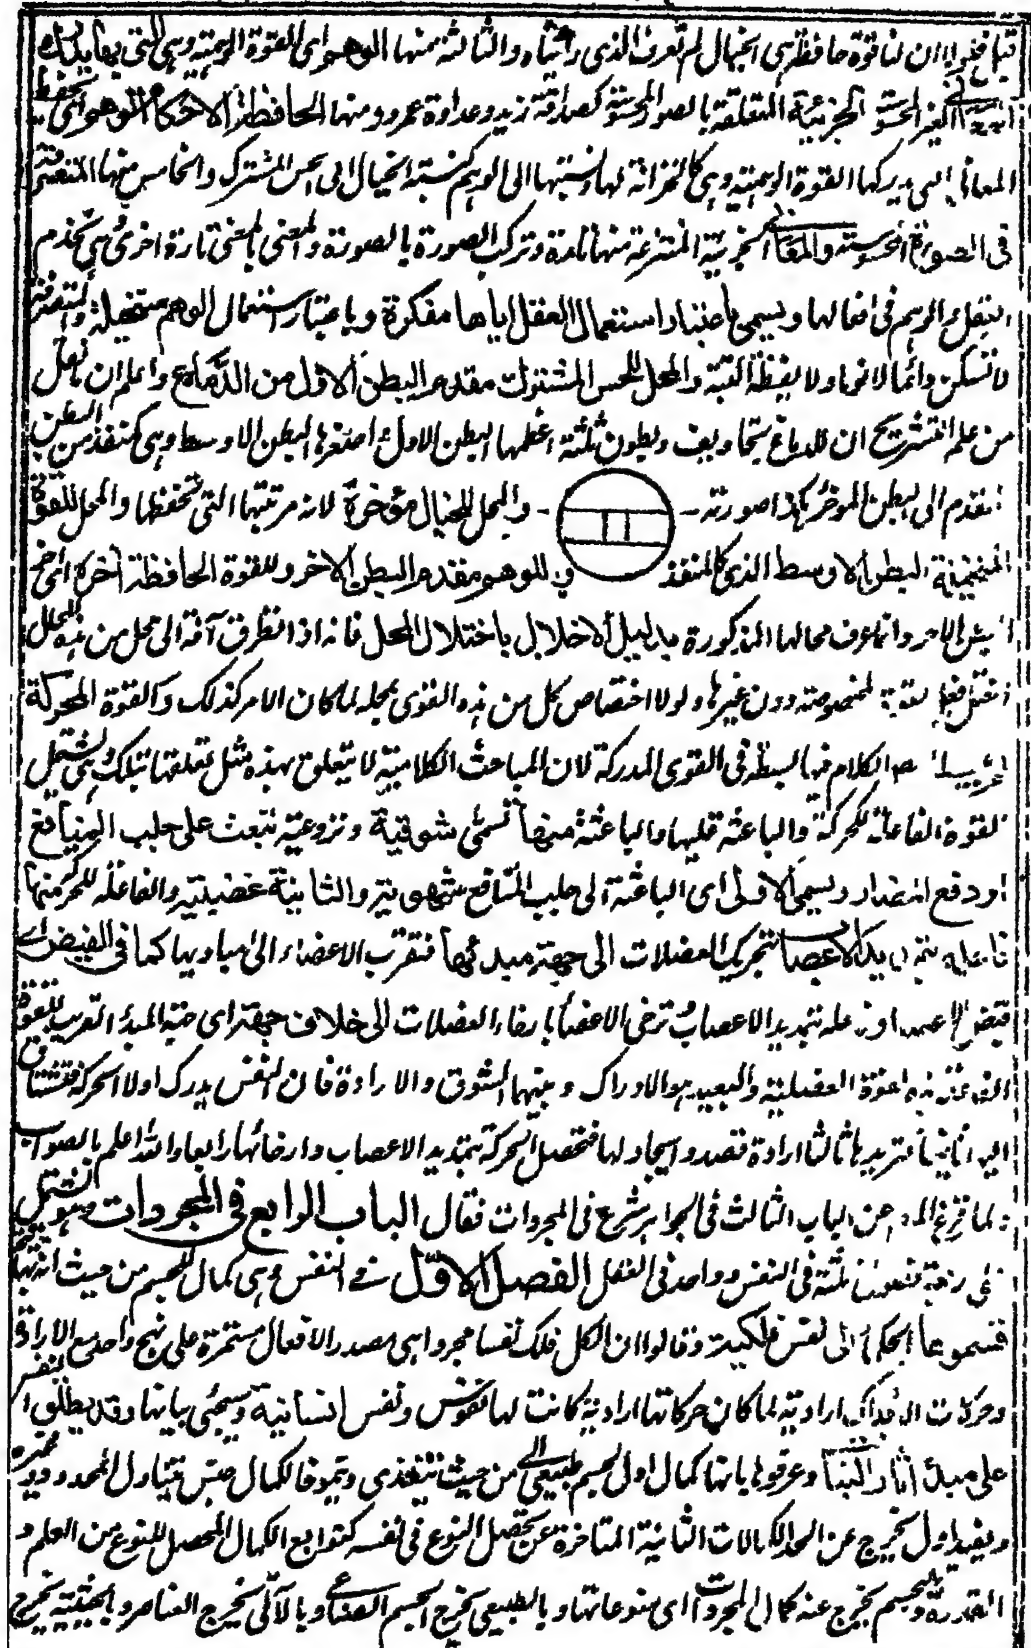 قبل فخلوا ان لنا قوة حافظة هي الخيال لم تعرف الذى رأيناه والثالثة منها الوهم وهى القوة الوهمية وهى التى بها يدرك
المعانى الغير المحسوسة الجزئية المتعلقة بالصور المحسوسة كصداقة زيد وعداوة عمرو ومنها الحافظة لاحكام الوهم وهى تحفظ
المعانى التى يدركها القوة الوهمية وهى كالخزانة لها ونسبتها الى الوهم كنسبة الخيال الى الحس المشترك والخامس منها المتصرفة
فى الصورة المحسوسة والمعانى الجزئية المنتزعة منها تارة وتركب الصورة بالصورة والمعنى بالمعنى تارة اخرى هى تخدم
العقل والوهم فى افعالها ويسمى باعتبار استعمال العقل اياها مفكرة وباعتبار استعمال الوهم متخيلة والمتصرفة
لا تسكن دائما لا نوما ولا يقظة البتة والمحل للحس المشترك مقدم البطن الاول من الدماغ واعلم ان نقل
من علم التشريح ان للدماغ تجاويف وبطون ثلثة اعظمها البطن الاول واصغرها البطن الاوسط وهى كمنفذ من البطن
المقدم الى البطن المؤخر هكذا صورته - - والمحل للخيال مؤخره لانه مرتبتها التى تحفظها والمحل للقوة
المتخيلة البطن الاوسط الذى كالمنفذ وللوهم مقدم البطن الاخر وللقوة الحافظة اخره اى اخر
البطن الاخر وانما عرف محالها المذكورة بدليل الاخلال باختلال المحل فانه اذا تطرق آفة الى محل من هذه المحال
اختل فعل القوة المخصوصة دون غيرها ولولا اختصاص كل من هذه القوى بمحله لما كان الامر كذلك والقوة المحركة
الكلام فيها ليسط فى القوى المدركة لان المباحث الكلامية لا يتعلق بهذه مثل تعلقها بتلك وهى يشتمل
القوة الفاعلة للحركة والباعثة عليها والباعثة منها تسمى شوقية ونزوعية تبعث على جلب المنافع
او دفع المضار ويسمى الاولى اى الباعثة الى جلب المنافع شهوية والثانية غضبية والفاعلة للحركة منها
فاعلية بتمديد الاعصاب تحريك العضلات الى جهة مبدئها فتقرب الاعضاء الى مباديها كما فى القبض اى
قبض الاعضاء او فاعلة بتمديد الاعصاب ترخى الاعضاء بارخاء العضلات الى خلاف جهة اى جهة المبدء القريب للقوة
الفاعلة هذه القوة العضلية والبعيد هو الادراك وبينهما الشوق والارادة فان النفس يدرك اولا الحركة فتشتاق
اليها ثانيا فتريدها ثالثا ارادة قصد وايجاد لها فتحصل الحركة بتمديد الاعصاب وارخائها رابعا والله اعلم بالصواب
ولما فرغ المص عن الباب الثالث فى الجواهر شرع فى المجردات فقال الباب الرابع فى المجردات وهو يشتمل
على اربعة فصول ثلثة فى النفس وواحد فى العقل الفصل الاول فى النفس وهى كمال للجسم من حيث انه
قسموها الحكماء الى نفس فلكية وقالوا ان لكل فلك نفسا مجردا هى مصدر الافعال مستمرة على نهج واحد مع الارادة
وحركات الافلاك ارادية لما كان حركاتها ارادية كانت لها نفوس ونفس انسانية وسيجئى بيانها وقد يطلق النفس
على مبدأ آثار النبات وعرفوها بانها كمال اول لجسم طبيعى آلى من حيث يتغذى وينمو فالكمال جنس يتناول المحدود وغيره
وبقيد اول يخرج عن الحد الكمالات الثانية المتاخرة عن تحصل النوع فى نفسه كتوابع الكمال المحصل للنوع من العلم و
القدرة وبجسم يخرج عنه كمال المجردات اى منوعاتها وبالطبيعى يخرج الجسم الصناعى وبالآلى يخرج العناصر وبالحيثية يخرج